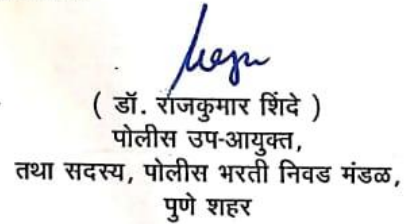 ( डॉ. राजकुमार शिंदे )
पोलीस उप-आयुक्त,
तथा सदस्य, पोलीस भरती निवड मंडळ,
पुणे शहर